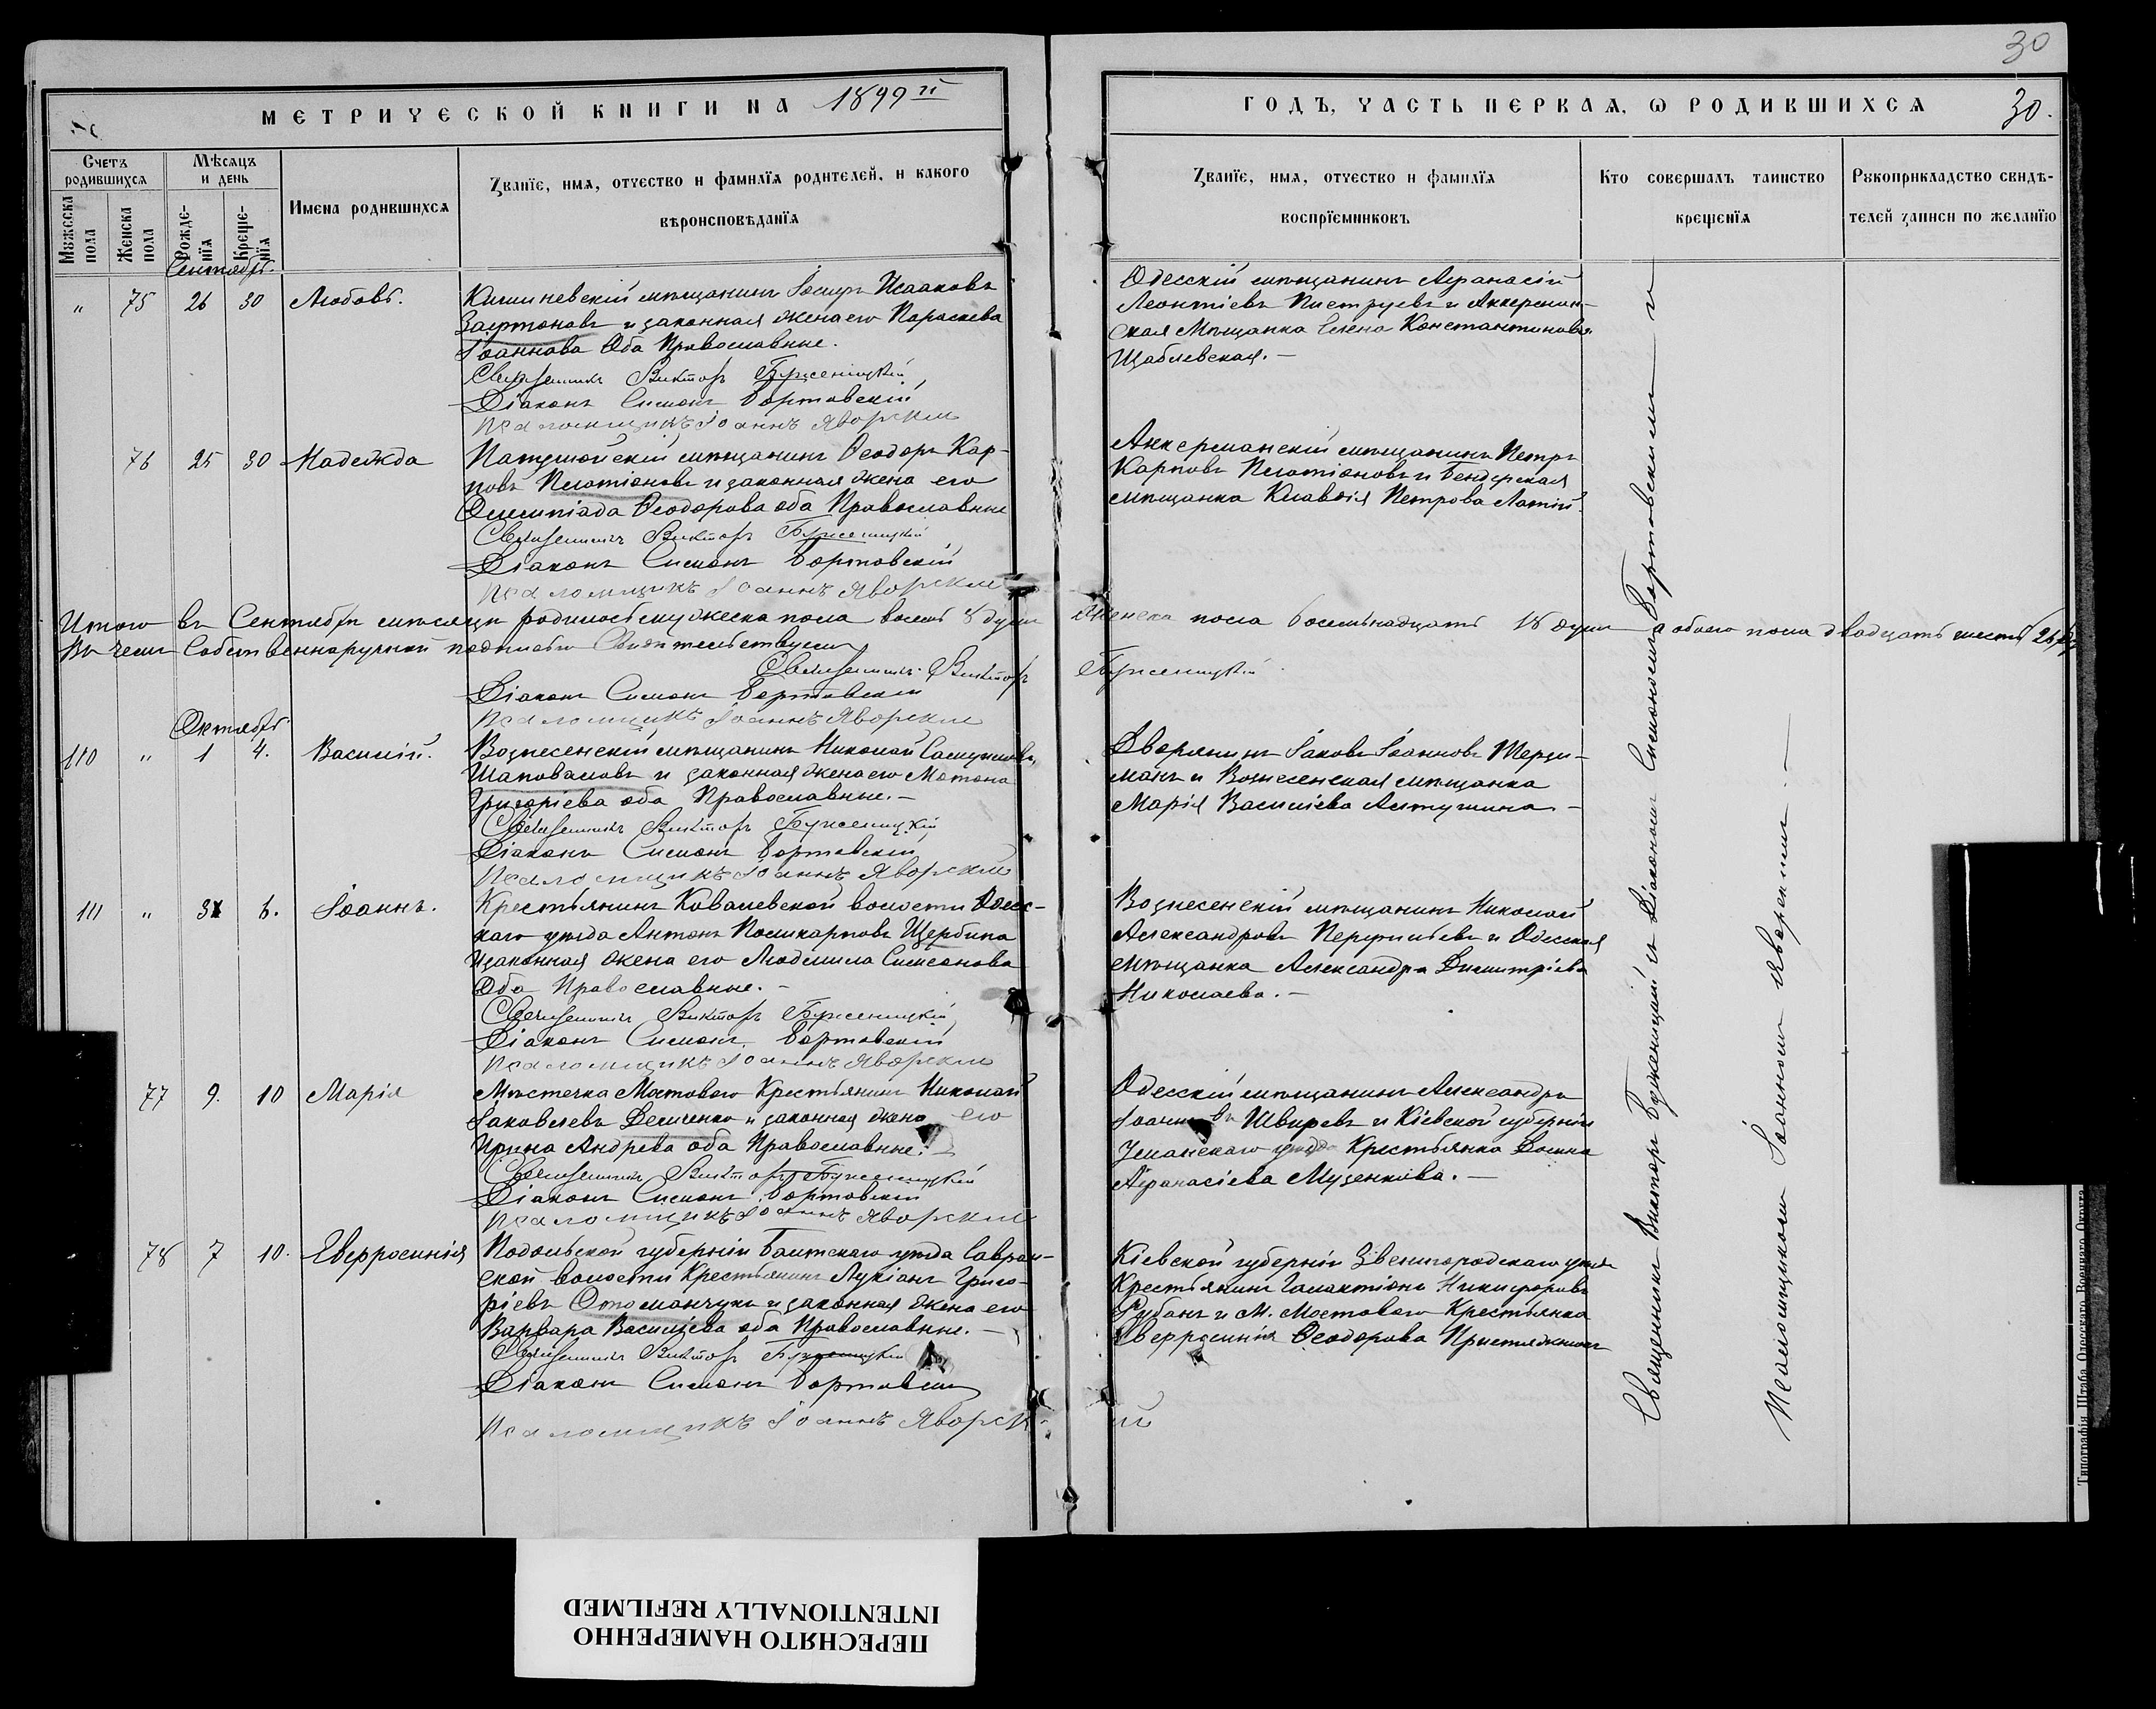 30
МЕТРИЧЕСКОЙ КНИГИ НА 1899й
ГОДЪ, ЧАСТЬ ПЕРВАЯ, Ѡ РОДИВШИХСЯ 30.
Счетъ родившихся
Мѣсяцъ и день
Мꙋжеска пола
Женска пола
Рожде-нїя
Креще-нїя
Имена родившихся
Званїе, имя, отчество и фамилїя родителей, и какого
вѣроисповѣданїя
Званїе, имя, отчество и фамилїя
воспрїемниковъ
Кто совершалъ таинство
крещенїя
Рꙋкоприкладство свидѣ-
телей записи по желанїю
Сентябрь.
" 75 26 30 Любовь.
Кишиневскій мѣщанинъ Іосифъ Исааковъ
Заутоновъ и законная жена его Параскева
Іоаннова Оба Православные.
Священникъ Викторъ Буженицкій
Діаконъ Симонъ Бортовскій
Псаломщикъ Іоаннъ Яворскій
Одесскій мѣщанинъ Афанасій
Леонтіевъ и Аккерман-
ская Мѣщанка Елена Константинова
Щаблевская.—
76 25 30 Надежда
мѣщанинъ Ѳеодоръ Кар-
повъ Плотіоновъ и законная жена его
Олимпіада Ѳеодорова оба Православные
Священникъ Викторъ Буженицкій
Діаконъ Симонъ Бортовскій
Псаломщикъ Іоаннъ Яворскій
Аккерманскій мѣщанинъ Петръ
Карповъ Плотіоновъ и Бендерская
мѣщанка Клавдія Петрова Латій.
Итого въ Сентябрѣ мѣсяцѣ родилось мужеска пола восемь 8 душъ женска пола восемьнадцать 18 душъ а обоего пола двадцать шесть 26
Въ чемъ Собственноручной подписью Свидетельствуемъ
Священникъ Викторъ Буженицкій.
Діаконъ Симонъ Бортовскій
Псаломщикъ Іоаннъ Яворскій
Октябрь
110 " 1 4. Василій.
Вознесенскій мѣщанинъ Николай Самуиловъ
Шаповаловъ и законная жена его Матрона
Григоріева оба Православные.—
Священникъ Викторъ Буженицкій
Діаконъ Симонъ Бортовскій
Псаломщикъ Іоаннъ Яворскій
Дворянинъ Іаковъ Іоанновъ Терзи-
манъ и Вознесенская мѣщанка
Марія Василіева Алтушина—
111 " 3 6. Іоаннъ.
Крестьянинъ Ковалевской волости Одесс-
каго уѣзда Антонъ Поликарповъ Щербина
и законная жена его Людмила Симеонова
Оба Православные.—
Священникъ Викторъ Буженицкій
Діаконъ Симонъ Бортовскій
Псаломщикъ Іоаннъ Яворскій
Вознесенскій мѣщанинъ Николай
Александровъ Перфильевъ и Одесская
мѣщанка Александра Димитріева
Николаева.—
77 9. 10 Марія
Мѣстечка Мостового Крестьянинъ Николай
Іаковлевъ Демченко и законная жена его
Ирина Андреева оба Православные.
Священникъ Викторъ Буженицкій
Діаконъ Симонъ Бортовскій
Псаломщикъ Іоаннъ Яворскій
Одесскій мѣщанинъ Александръ
Швыревъ и Кіевской губерніи
Уманскаго уѣзда Крестьянка Домна
Афанасіева Музенкова.—
78 7 10. Евфросинія
Подольской губерніи Балтскаго уѣзда Савран-
ской волости Крестьянинъ Лукіанъ Григо-
ріевъ Отоманчукъ и законная жена его
Варвара Василіева оба Православные.—
Священникъ Викторъ Буженицкій
Діаконъ Симонъ Бортовскій
Псаломщикъ Іоаннъ Яворскій
Кіевской губерніи Звенигородскаго уѣзда
Крестьянинъ Галактіонъ Никифоровъ
Рубанъ и М. Мостового Крестьянка
Евфросинія Ѳеодорова
Священникъ Викторъ Буженицкій съ Діакономъ Симономъ Бортовскимъ и
Псаломщикомъ Іоанномъ Яворскимъ.—
Типографія Штаба Одесскаго Военнаго Округа
ПЕРЕСНЯТО НАМЕРЕННО
INTENTIONALLY REFILMED